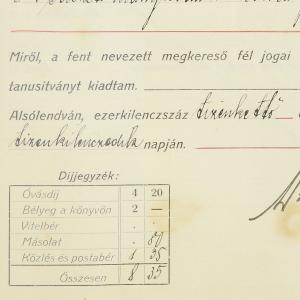 Miről, a fent nevezett megkereső fél jogai
tanusitványt kiadtam.
Alsólendván, ezerkilenczszáz tizenkettő
tizenkilenczedik napján.
Díjjegyzék:
Óvásdíj 4 20
Bélyeg a könyvön 2 —
Vitelbér . .
Másolat . 80
Közlés és postabér 1 35
Összesen 8 35